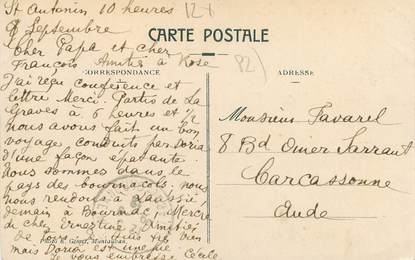 St Antonin 10 heures
9 Septembre
Cher Papa et cher
François Amitié à Rose
J'ai reçu conférence et
lettre Merci. Partis de La
Graves à 6 heures et 1/2
nous avons fait un bon
voyage conduits par Doria
d'une façon épatante
Nous sommes dans le
pays des bournacols. nous
nous rendons à
demain à
chez Ernestine. Amitiés
de tous. à tous très bien
mais Dorian est une
je vous embrasse Cécile
12+
CARTE POSTALE
82)
CORRESPONDANCE
ADRESSE
Monsieur Favarel
8 Bd Omer Sarraut
Carcassonne
Aude
Montauban